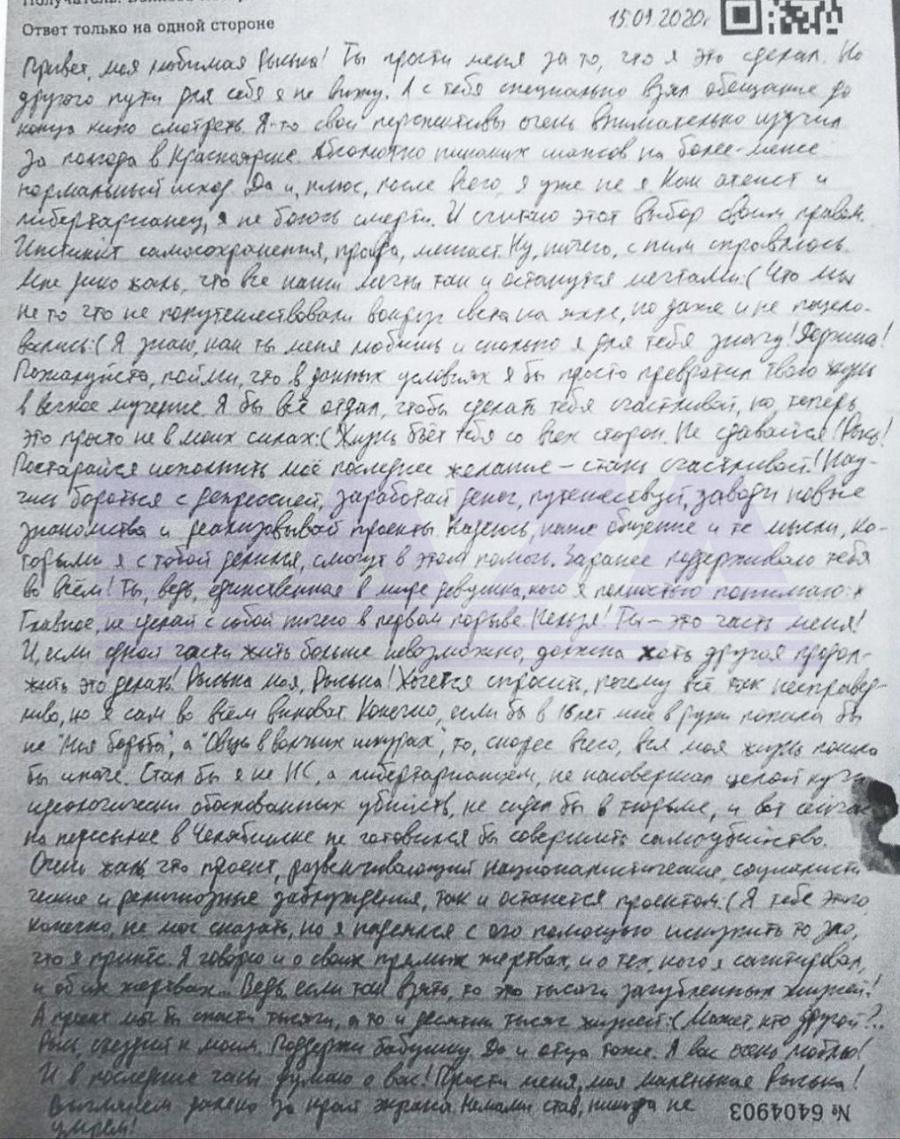 Ответ только на одной стороне
15.09.2020г
Привет, моя любимая Рыська! Ты прости меня за то, что я это сделал. Но
другого пути для себя я не вижу. А с тебя специально взял обещание до
конца кино смотреть. Я-то свои перспективы очень внимательно изучил
за полгода в Красноярске. Абсолютно никаких шансов на более-менее
нормальный исход. Да и, плюс, после всего, я уже не я. Как атеист и
либертарианец, я не боюсь смерти. И считаю этот выбор своим правом.
Инстинкт самосохранения, правда, мешает. Ну, ничего, с ним справлюсь.
Мне дико жаль, что все наши мечты так и останутся мечтами:( Что мы
не то что не попутешествовали вокруг света на яхте, но даже и не поцело-
вались:( Я знаю, как ты меня любишь и сколько я для тебя значу! Держись!
Пожалуйста, пойми, что в данных условиях я бы просто превратил твою жизнь
в вечное мучение. Я бы всё отдал, чтобы сделать тебя счастливой, но, теперь
это просто не в моих силах:( Жизнь бьёт тебя со всех сторон. Не сдавайся! Рысь!
Постарайся исполнить моё последнее желание – стань счастливой! Нау-
чись бороться с депрессией, заработай денег, путешествуй, заводи новые
знакомства и реализовывай проекты. Надеюсь, наше общение и те мысли, ко-
торыми я с тобой делился, смогут в этом помочь. Заранее поддерживаю тебя
во всём! Ты, ведь, единственная в мире девушка, кого я полностью понимаю:*
Главное, не сделай с собой ничего в первом порыве. Нельзя! Ты – это часть меня!
И, если одной части жить больше невозможно, должна хоть другая продол-
жить это делать! Рыська моя, Рыська! Хочется спросить, почему всё так несправед-
ливо, но я сам во всём виноват. Конечно, если бы в 16 лет мне в руки попала бы
не "Моя борьба", а "Овцы в волчьих шкурах", то, скорее всего, вся моя жизнь пошла
бы иначе. Стал бы я не НС, а либертарианцем, не насовершал целой кучи
идеологически обоснованных убийств, не сидел бы в тюрьме, и вот сейчас
на пересылке в Челябинске не готовился бы совершить самоубийство.
Очень жаль что проект, развенчивающий националистические, социалисти-
ческие и религиозные заблуждения, так и останется проектом:( Я тебе этого,
конечно, не мог сказать, но я надеялся с его помощью искупить то зло,
что я принёс. Я говорю и о своих прямых жертвах, и о тех, кого я сагитировал,
и об их жертвах... Ведь, если так взять, то это тысячи загубленных жизней!
А проект мог бы спасти тысячи, а то и десятки тысяч жизней:( Может, кто другой?..
Рысь, съезди к моим. Поддержи бабушку. Да и отца тоже. Я вас очень люблю!
И в последние часы думаю о вас! Прости меня, моя маленькая Рыська!
Выглянем далеко за край экрана. Нами став, никогда не
умрем!
№ 6404903
BAZA